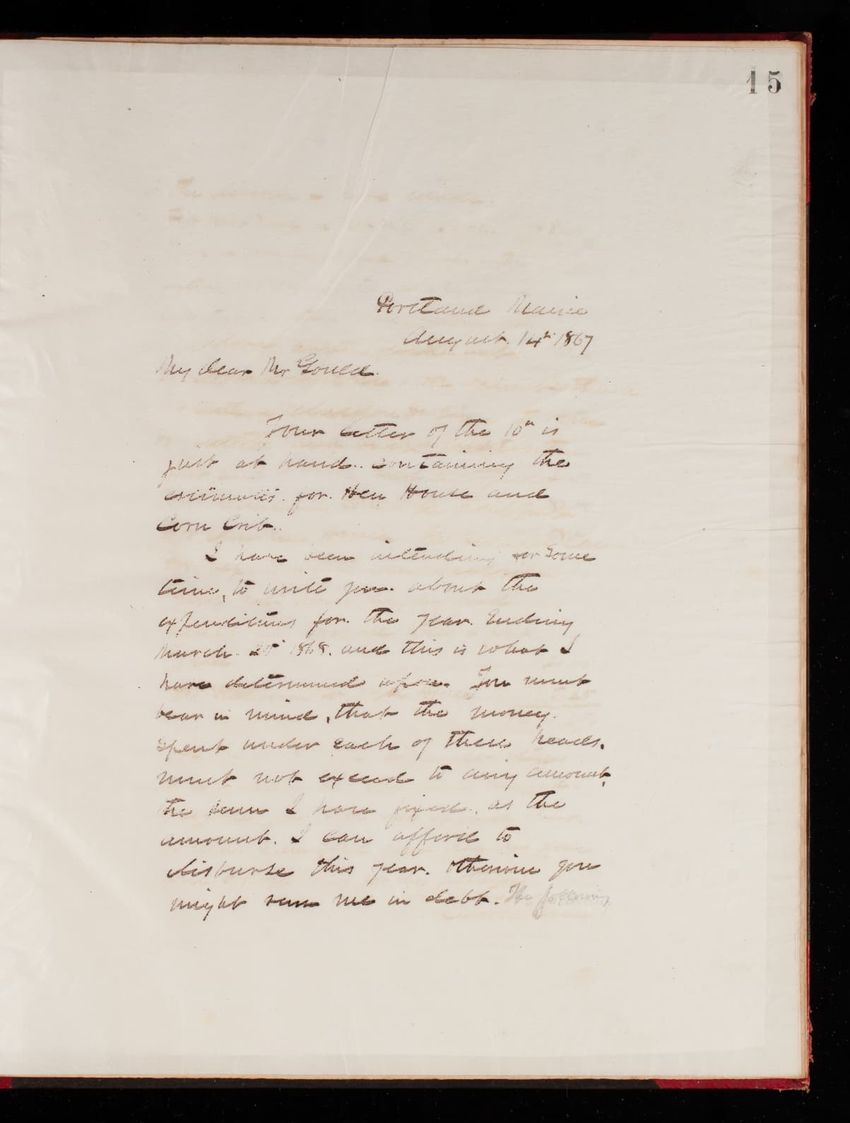 15
Portland Maine
August. 14th 1867
My dear Mr Gould.
Your letter of the 10th is
just at hand.. containing the
estimates. for. Hen House and
Corn Crib..
I have been intending for some
time, to write you. about the
expenditures for. the year. Ending
March. 1868. and this is what I
have determined upon. You must
bear in mind, that the money.
spent under each of these heads.
must not exceed to any amount,
the sum I have fixed. as the
amount. I can afford to
disburse this year. otherwise you
might run me in debt. The following